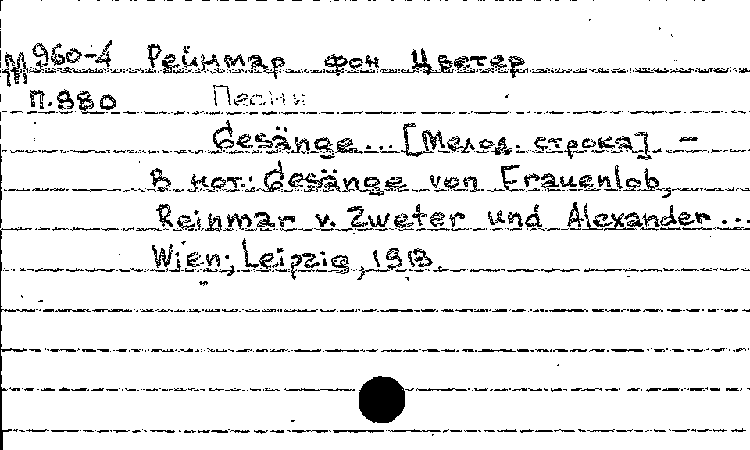 М 960-4 Рейнмар фон Цветер
П.880 Песни
Gesänge... [Мелод. строка]. –
В нот.: Gesänge von Frauenlob,
Reinmar v. Zweter und Alexander...
Wien; Leipzig, 1913.